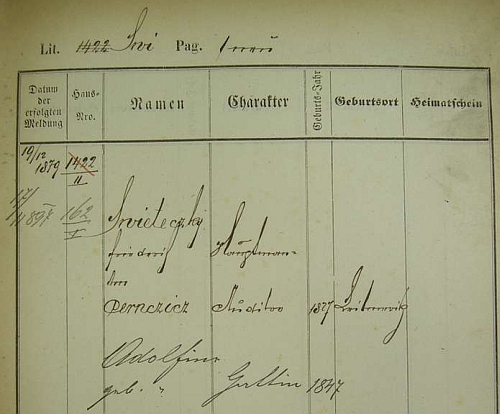 Lit. 1422 Swi Pag.
Datum der erfolgten Meldung
Haus-Nro.
Namen
Charakter
Geburts-Jahr
Geburtsort
Heimatschein
19/12 1879 1422/II
162/I
Swieteczky
Friedrich Hauptmann-
Pernczicz Auditor 1827 Leitmeritz
Adolfine
geb. " Gattin 1847